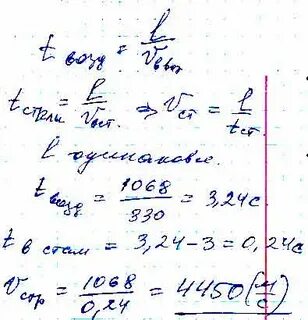 t возд = l/Vвоз
t стали = l/Vст. ⇒ Vст = l/tст.
l одинаковы.
t возд = 1068/330 = 3,24 с.
t в стали = 3,24-3=0,24с
Vстр = 1068/0,24 = 4450 (м/с)